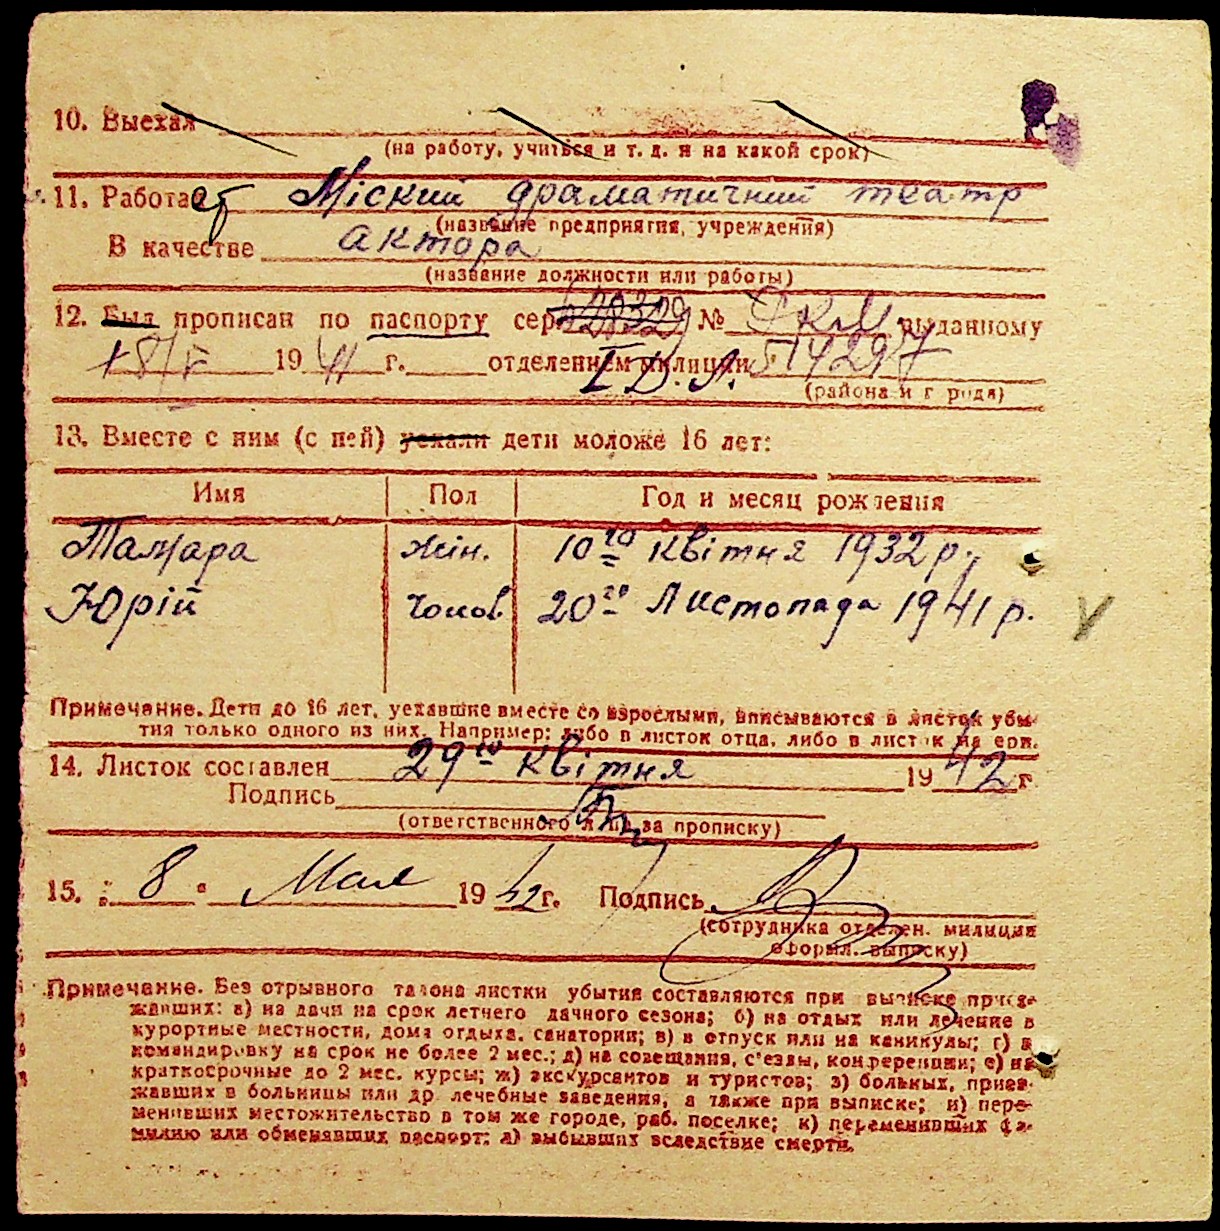 10. Выехал
(на работу, учиться и т. д. и на какой срок)
11. Работает Міский драматичний театр
(название предприятия, учреждения)
В качестве актора
(название должности или работы)
12. Был прописан по паспорту сер. № выданному
18/V 1941 г. отделением милиции 514297
(района и города)
13. Вместе с ним (с ней) уехали дети моложе 16 лет:
Имя Пол Год и месяц рождения
Тамара жін. 10го квітня 1932 р.
Юрій чолов. 20го Листопада 1941 р.
Примечание. Дети до 16 лет, уехавшие вместе со взрослыми, вписываются в листок убы-
тия только одного из них. Например: либо в листок отца, либо в листок матери.
14. Листок составлен 29го квітня 1942 г
Подпись
(ответственного лица за прописку)
15. „ 8 " Мая 1942 г. Подпись
(сотрудника отделен. милиции
оформл. выписку)
Примечание. Без отрывного талона листки убытия составляются при выписке приез-
жавших: а) на дачи на срок летнего дачного сезона; б) на отдых или лечение в
курортные местности, дома отдыха, санатории; в) в отпуск или на каникулы; г) в
командировку на срок не более 2 мес.; д) на совещания, с'езды, конференции; е) на
краткосрочные до 2 мес. курсы; ж) экскурсантов и туристов; з) больных, приез-
жавших в больницы или др. лечебные заведения, а также при выписке; и) пере-
менивших местожительство в том же городе, раб. поселке; к) переменивших фа-
милию или обменявших паспорт; л) выбывших вследствие смерти.